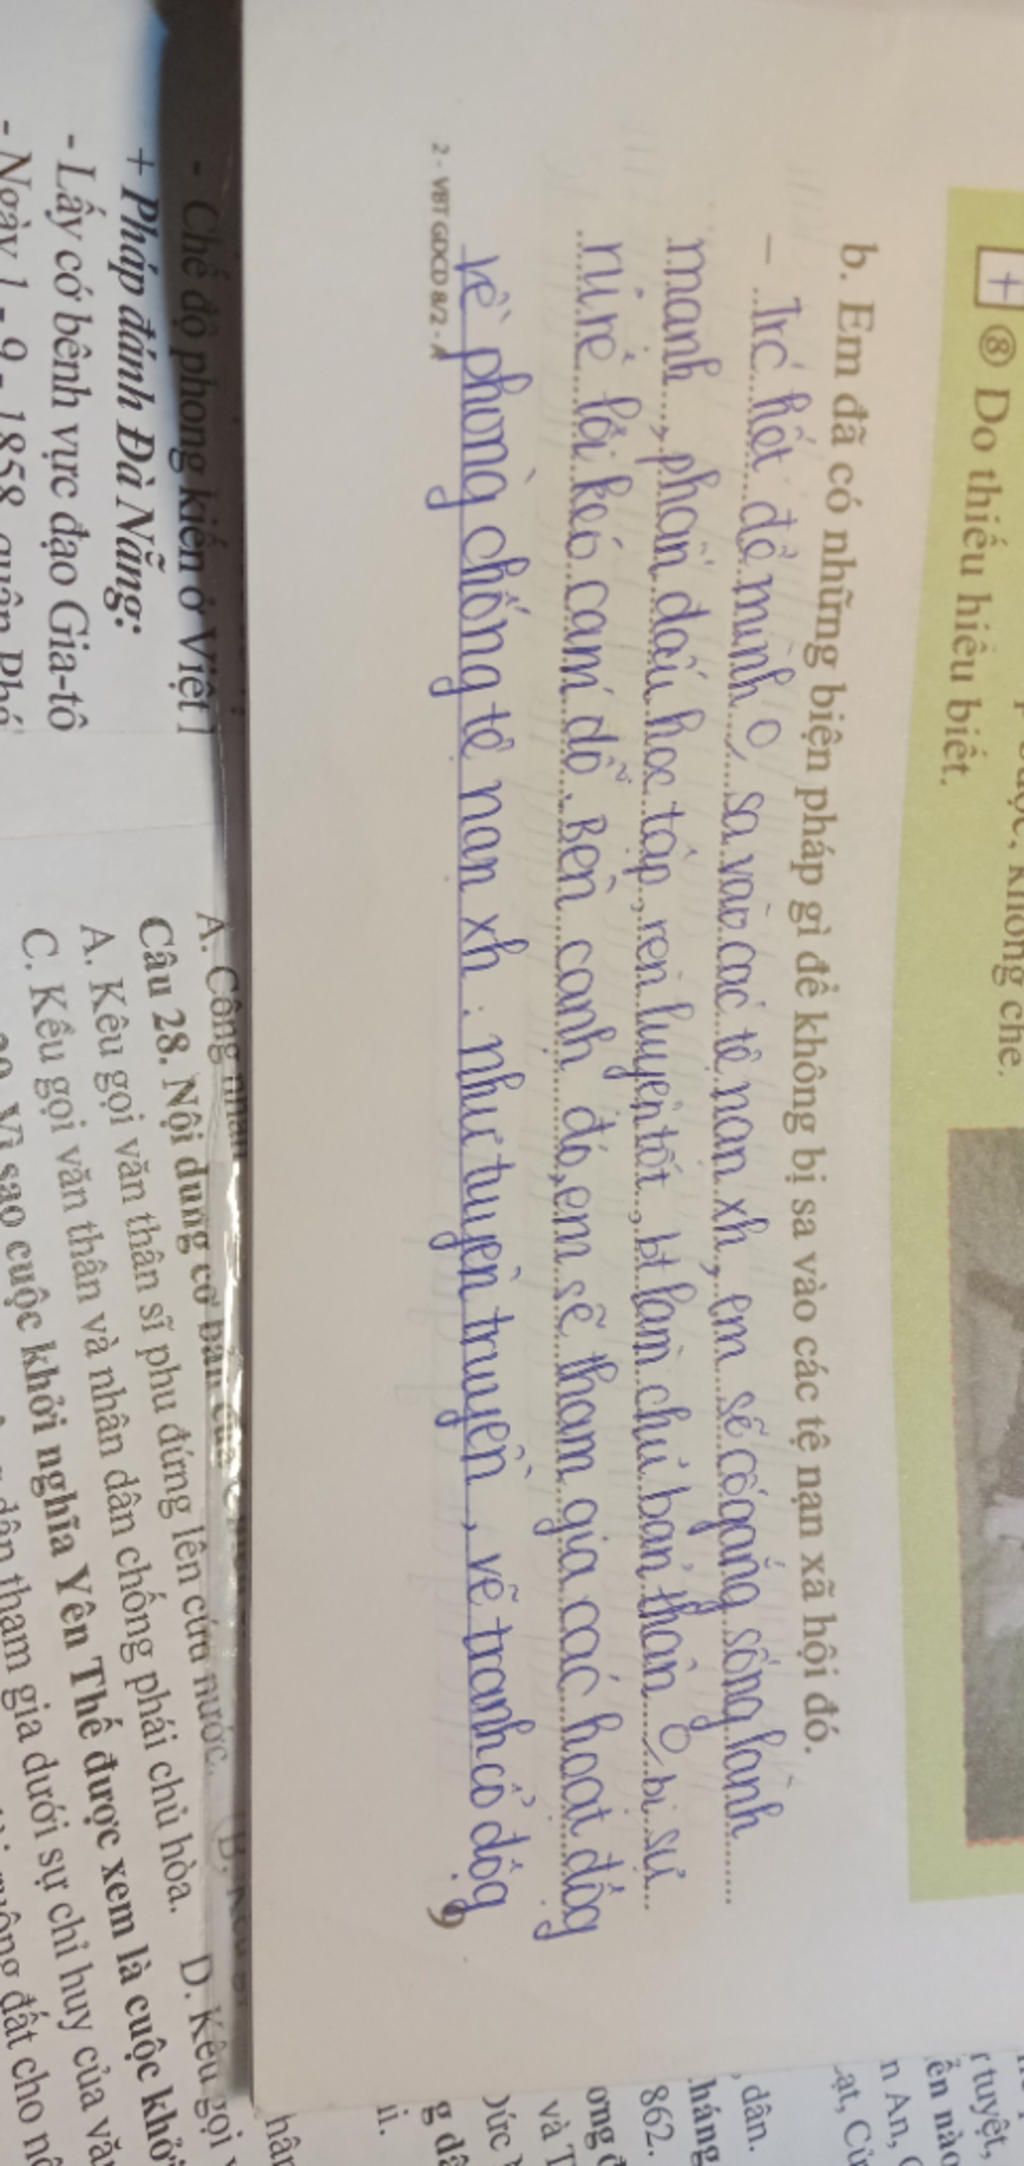 ⑧ Do thiếu hiểu biết.
b. Em đã có những biện pháp gì để không bị sa vào các tệ nạn xã hội đó.
– Trc hết để mình 0 sa vào các tệ nạn xh, em sẽ cố gắng sống lành
mạnh, phấn đấu học tập, rèn luyện tốt, bt làm chủ bản thân 0 bị sự
rủ rê lôi kéo cám dỗ. Bên cạnh đó, em sẽ tham gia các hoạt động
về phòng chống tệ nạn xh: như tuyên truyền, vẽ tranh cổ động
2 - VBT GDCD 8/2 - A
9
- Chế độ phong kiến ở Việt
+ Pháp đánh Đà Nẵng:
- Lấy cớ bênh vực đạo Gia-tô
- Ngày 1 - 9 - 1858, quân Phá
A. Công nhân
Câu 28. Nội dung cơ bản của
A. Kêu gọi văn thân sĩ phu đứng lên cứu nước.
C. Kêu gọi văn thân và nhân dân chống phái chủ hòa.
D. Kêu gọi
Vì sao cuộc khởi nghĩa Yên Thế được xem là cuộc khở
dân tham gia dưới sự chỉ huy của vă
ruộng đất cho nô
tuyệt,
n An,
dân.
háng
862.
ong đ
và T
g dâ